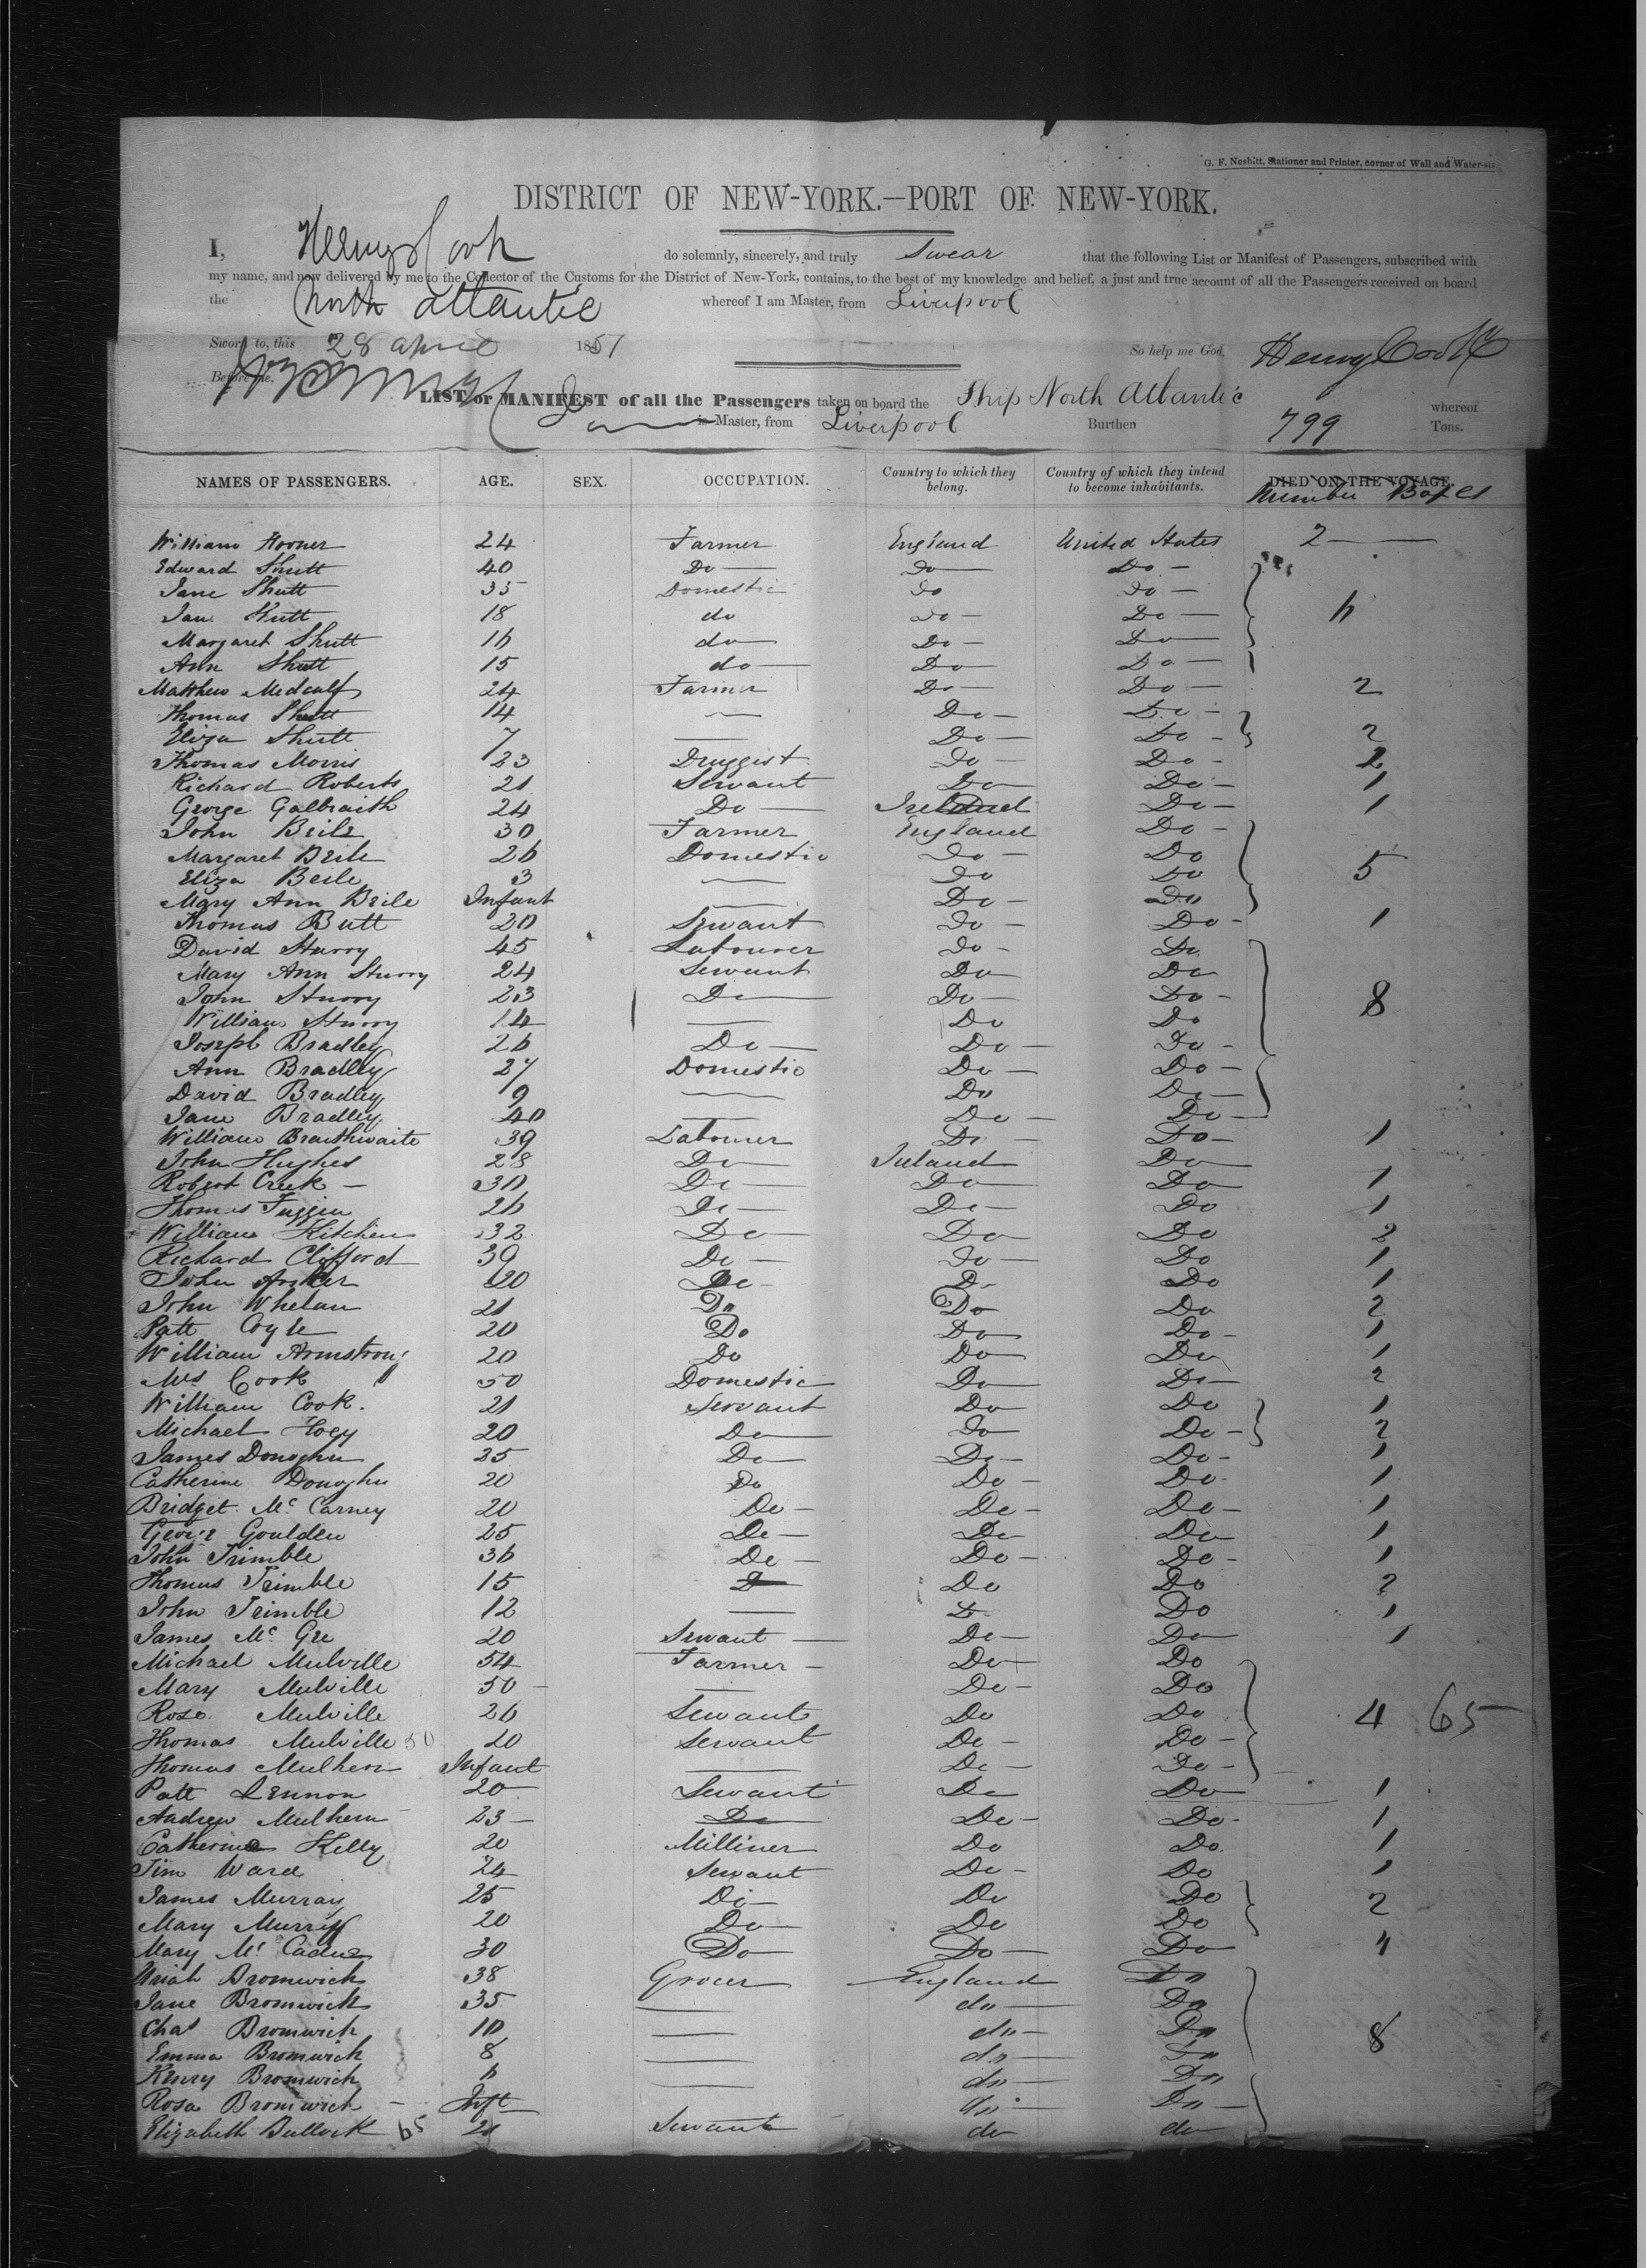 G. F. Nesbitt, Stationer and Printer, corner of Wall and Water-sts
DISTRICT OF NEW-YORK.—PORT OF NEW-YORK.
I, Henry Cook do solemnly, sincerely, and truly Swear that the following List or Manifest of Passengers, subscribed with
my name, and now delivered by me to the Collector of the Customs for the District of New-York, contains, to the best of my knowledge and belief, a just and true account of all the Passengers received on board
the North Atlantic whereof I am Master, from Liverpool
Sworn to, this 28 April 1851 So help me God. Henry Cook
Before me,
LIST or MANIFEST of all the Passengers taken on board the Ship North Atlantic whereof
is Master, from Liverpool Burthen 799 Tons.
NAMES OF PASSENGERS. AGE. SEX. OCCUPATION. Country to which they belong. Country of which they intend to become inhabitants. DIED ON THE VOYAGE.
Number Boxes
William 24 Farmer England United States 2
Edward Shutt 40 Do do Do
Jane Shutt 35 Domestic do do
Jane Shutt 18 do do Do 6
Margaret Shutt 16 do Do Do
Ann Shutt 15 do Do Do
Matthew Medcalf 24 Farmer Do Do 2
Thomas Shutt 14 — Do Do
Eliza Shutt 7 — Do Do 2
Thomas Morris 23 Druggist do Do 2
Richard Roberts 21 Servant Do Do 1
George Galbraith 24 Do Ireland Do 1
John 30 Farmer England Do
Margaret 26 Domestic do Do
Eliza 3 — do Do 5
Mary Ann Infant — Do Do
Thomas Butt 20 Servant do Do 1
David Sturry 45 Labourer do Do
Mary Ann Sturry 24 Servant Do Do
John Sturry 23 Do Do Do
William Sturry 14 — Do Do 8
Joseph Bradley 26 Do Do Do
Ann Bradley 27 Domestic Do Do
David Bradley 9 — Do Do
Jane Bradley 40 — Do Do
William Braithwaite 39 Labourer Do Do 1
John Hughes 28 Do Ireland Do
Robert Creek 30 Do Do Do 1
Thomas 26 Do Do Do 1
William Kitchen 32 Do Do Do 2
Richard Clifford 39 Do do Do 1
John 20 Do Do Do 1
John Whelan 21 Do Do Do 2
Patt Coyle 20 Do Do Do 1
William Armstrong 20 Do Do Do 1
Mrs Cook 50 Domestic Do Do 2
William Cook. 21 Servant Do Do 1
Michael Hoey 20 Do do Do 2
James Donoghu 25 Do Do Do 1
Catherine Donoghu 20 Do Do Do 1
Bridget Mc Carney 20 Do Do Do 1
George Goulden 25 Do Do Do 1
John Trimble 36 Do Do Do 1
Thomas Trimble 15 Do Do 2
John Trimble 12 — Do Do 1
James Mc Gee 20 Servant Do Do 1
Michael Mulville 54 Farmer Do Do
Mary Mulville 50 — Do Do
Rose Mulville 26 Servant Do Do 4 65
Thomas Mulville 50 20 Servant Do Do
Thomas Mulhern Infant — Do Do
Patt Lennon 20 Servant Do Do 1
Andrew Mulhern 23 Do Do Do 1
Catherine Kelly 20 Milliner Do Do 1
Jim Ward 24 Servant Do Do 1
James Murray 25 Do Do Do 2
Mary Murray 20 Do Do Do
Mary Mc 30 Do Do Do 4
Uriah Bromwich 38 Grocer England Do
Jane Bromwich 35 — do Do
Chas Bromwich 10 — do Do
Emma Bromwich 8 — do Do 8
Henry Bromwich 6 — do Do
Rosa Bromwich Inft do Do
Elizabeth Bullock 65 21 Servant do do